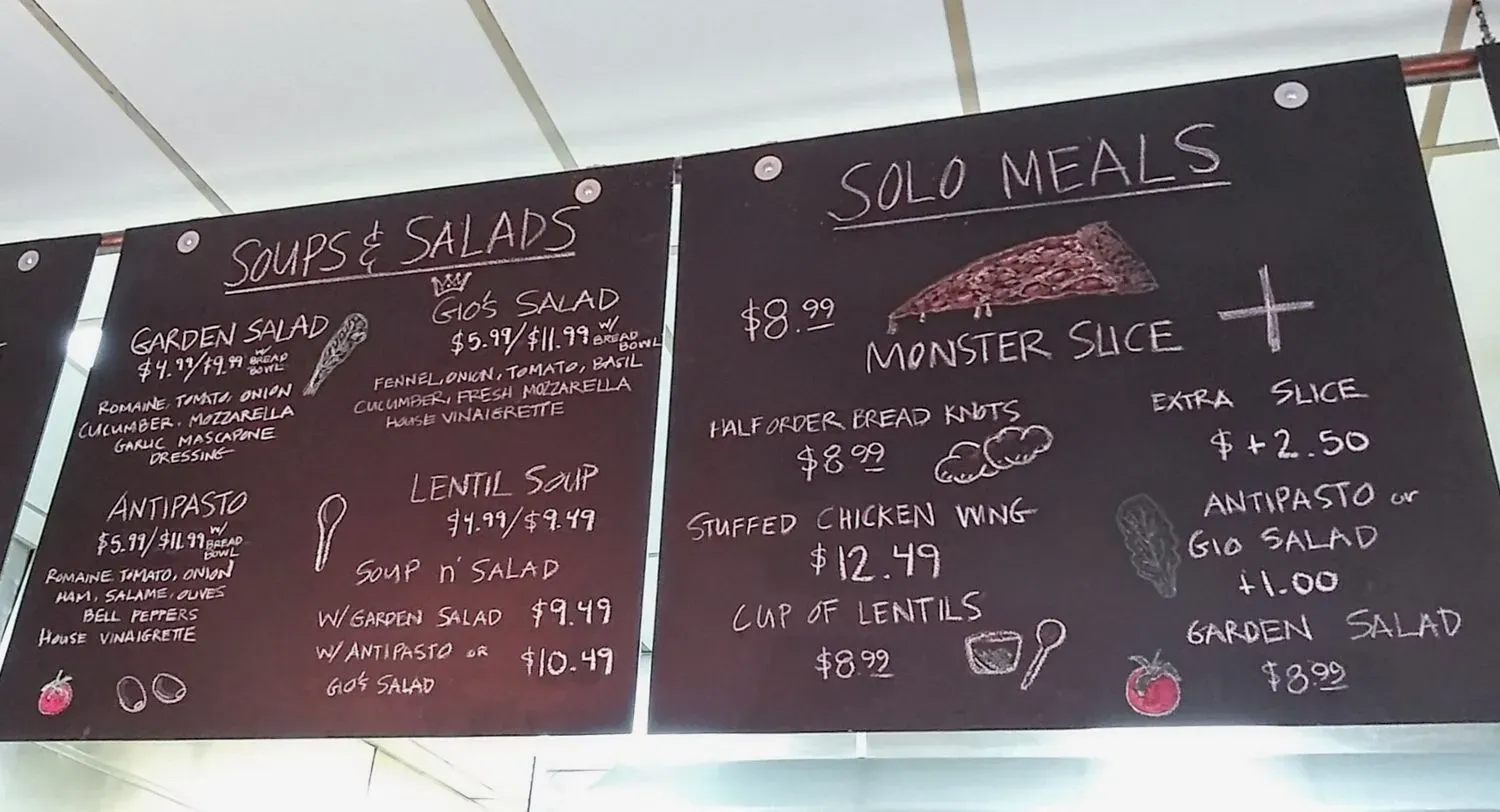 SOUPS & SALADS
GARDEN SALAD
$4.99/$9.99 W/ BREAD BOWL
ROMAINE, TOMATO, ONION
CUCUMBER, MOZZARELLA
GARLIC MASCAPONE
DRESSING
GIO'S SALAD
$5.99/$11.99 W/ BREAD BOWL
FENNEL, ONION, TOMATO, BASIL
CUCUMBER, FRESH MOZZARELLA
HOUSE VINAIGRETTE
ANTIPASTO
$5.99/$11.99 W/ BREAD BOWL
ROMAINE TOMATO, ONION
HAM, SALAME, OLIVES
BELL PEPPERS
HOUSE VINAIGRETTE
LENTIL SOUP
$4.99/$9.49
SOUP n' SALAD
W/GARDEN SALAD $9.49
W/ANTIPASTO OR $10.49
GIO'S SALAD
SOLO MEALS
$8.99
MONSTER SLICE
+
HALF ORDER BREAD KNOTS
$8.99
STUFFED CHICKEN WING
$12.49
CUP OF LENTILS
$8.99
EXTRA SLICE
$+2.50
ANTIPASTO or
GIO SALAD
+1.00
GARDEN SALAD
$8.99